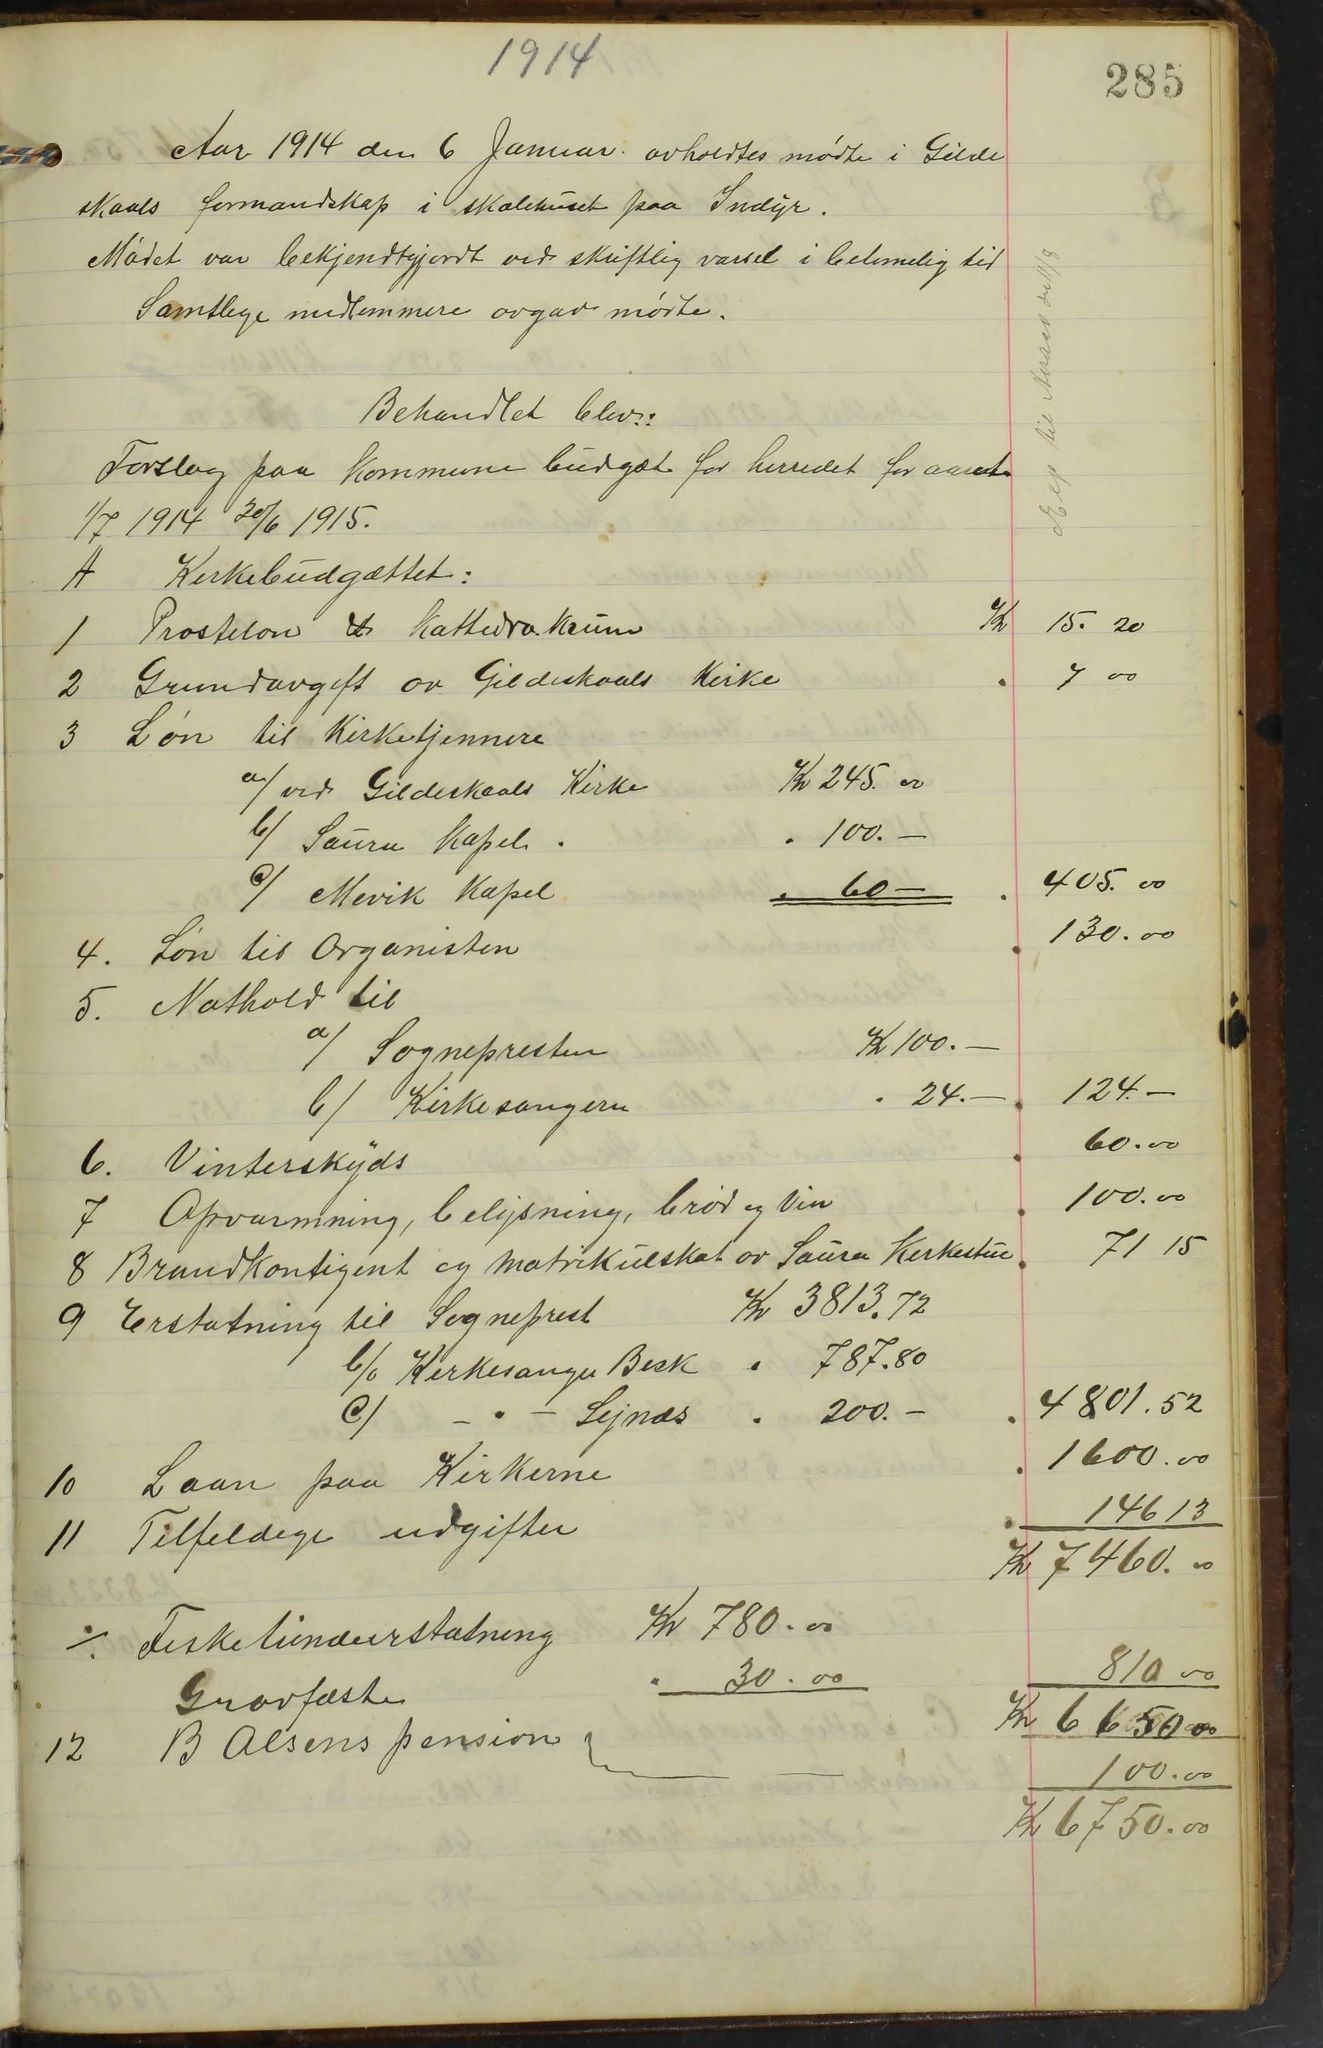 1914
285
Aar 1914 den 6 Januar. avholdtes møte i Gilde
skaals formandskap i skolehuset paa Indyr.
Mødet var bekjendtgjordt ved skriftlig varsel i betimelig tid
Samtlege medlemmere avgav møte.
Behandlet blev:
Forslag paa Kommune budgæt for herredet for aaret
1/7 1914 30/6 1915.
A Kirkebudgættet:
1 Prostelon & Kattedratikum Kr 15. 20
2 Grundavgift av Gildeskaals Kirke " 7 00
3 Løn til Kirketjennere
a/ ved Gildeskaals Kirke Kr 245. 00
b/ Saura Kapel. " 100. —
c/ Mevik Kapel " 60 — " 405. 00
4. Løn til Organisten " 130. 00
5. Nathold til
a/ Sognepresten Kr 100. —
b/ Kirkesangern " 24. — " 124. —
6. Vinterskyds " 60. 00
7 Opvarmning, belysning, brød og Vin " 100. 00
8 Brandkontigent og matrikulskat av Saura Kirkestue " 71 15
9 Erstatning til Sogneprest Kr 3813. 72
b/ Kirkesanger Besk " 787. 80
c/ — " — Sejnæs " 200. — " 4801. 52
10 Laan paa Kirkerne " 1600. 00
11 Tilfeldige udgifter " 146 13
Kr 7460. 00
÷ Fisketiendeerstatning Kr 780. 00
Gravfæste " 30. 00 810 00
Kr 6650 00
12 B Olsens pension 100. 00
Kr 6750. 00